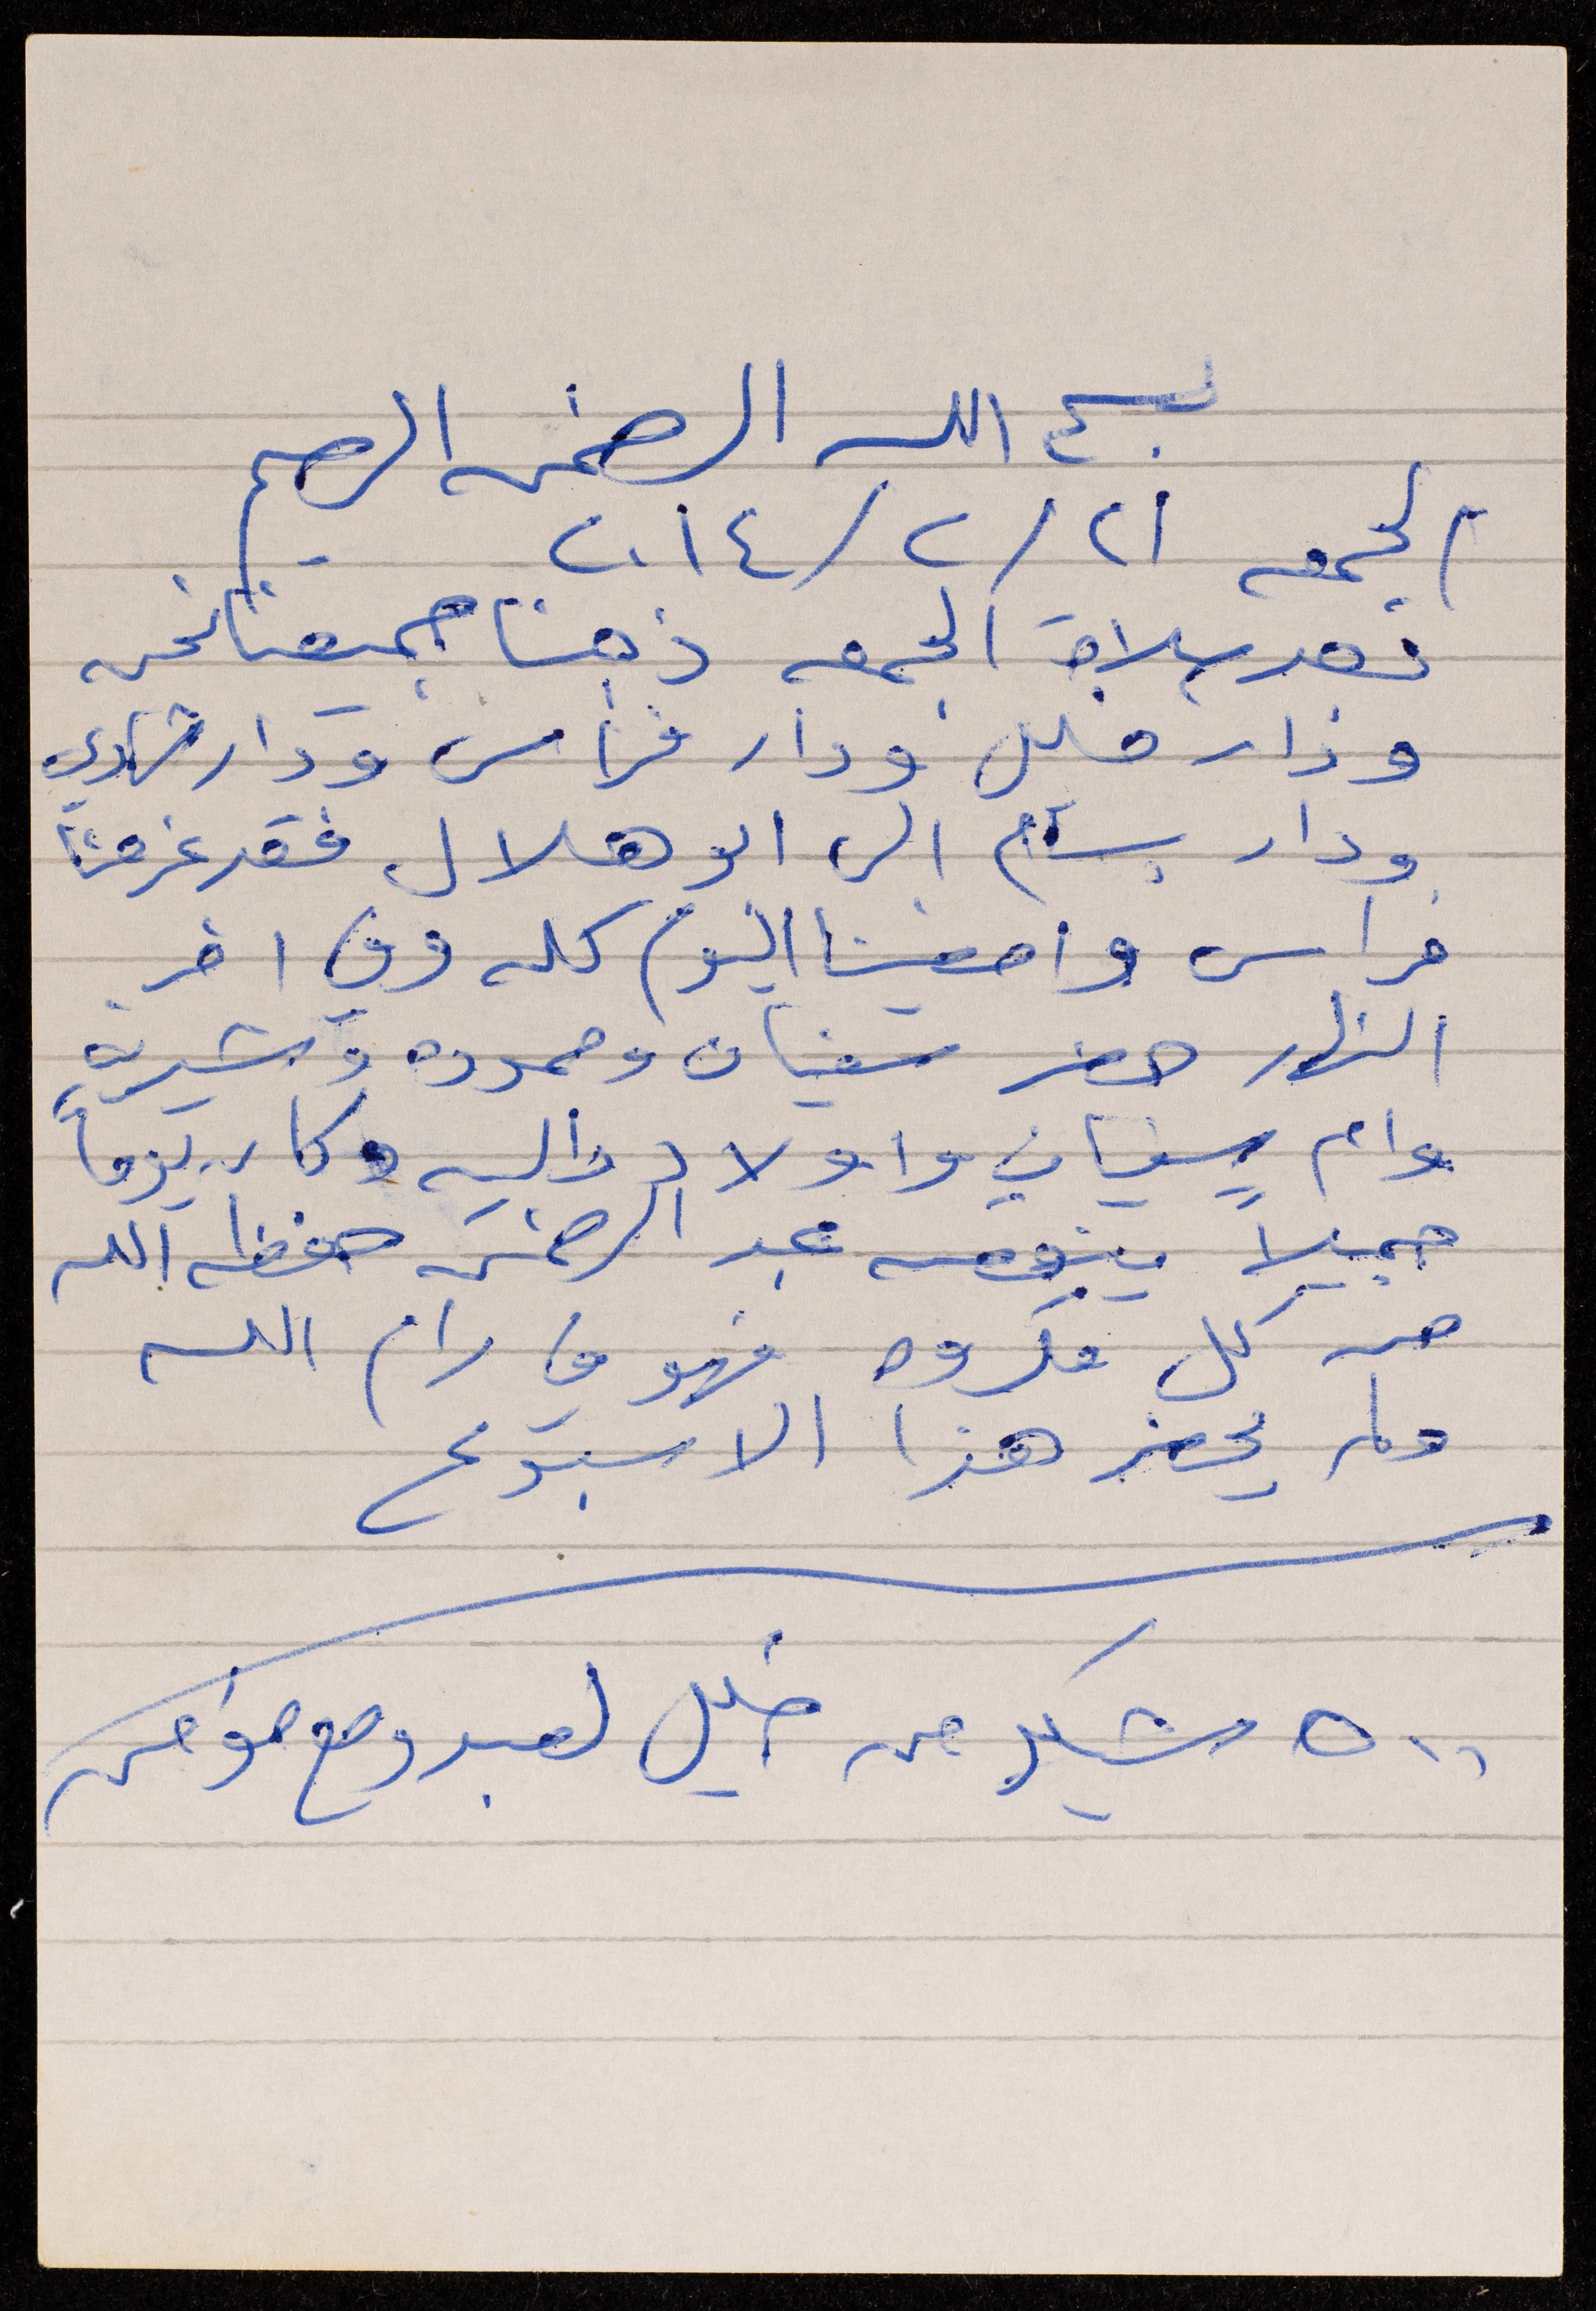 بسم الله الرحمن الرحيم
الجمعه ٢١/٢/٢٠١٤
فبعد صلاة الجمعه ذهبنا جميعنا نحن
ودار خليل ودار فراس ودار شادي
ودار بسام الى ابو هلال فقد عزمنا
فراس وامضينا اليوم كله وفي اخر
النهار حضر سفيان وحموده وشيرين
وام سفيان واولاد داليه وكان يوماً
جميلاً ينقصه عبد الرحمن حفظه الله
من كل مكروه فهو في رام الله
ولم يحضر هذا الاسبوع
٥٠٠ شيكل من خليل لعبد ومع مؤمن